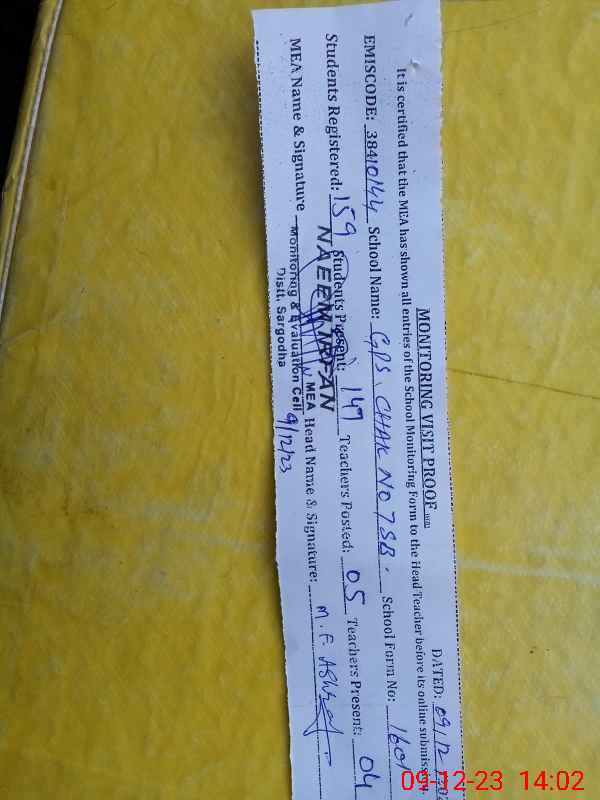 MONITORING VISIT PROOF
DATED: 09/12/202
It is certified that the MEA has shown all entries of the School Monitoring Form to the Head Teacher before its online submission.
EMISCODE: 38410144 School Name: GPS. CHAK NO 7SB. School Form No: 1601
Students Registered: 159 Students Present: 149 Teachers Posted: 05 Teachers Present: 04
MEA Name & Signature Head Name & Signature: M. F. Ashraf
NAEEM IRFAN
MEA
Monitoring & Evaluation Cell
Distt. Sargodha
9/12/23
09-12-23 14:02